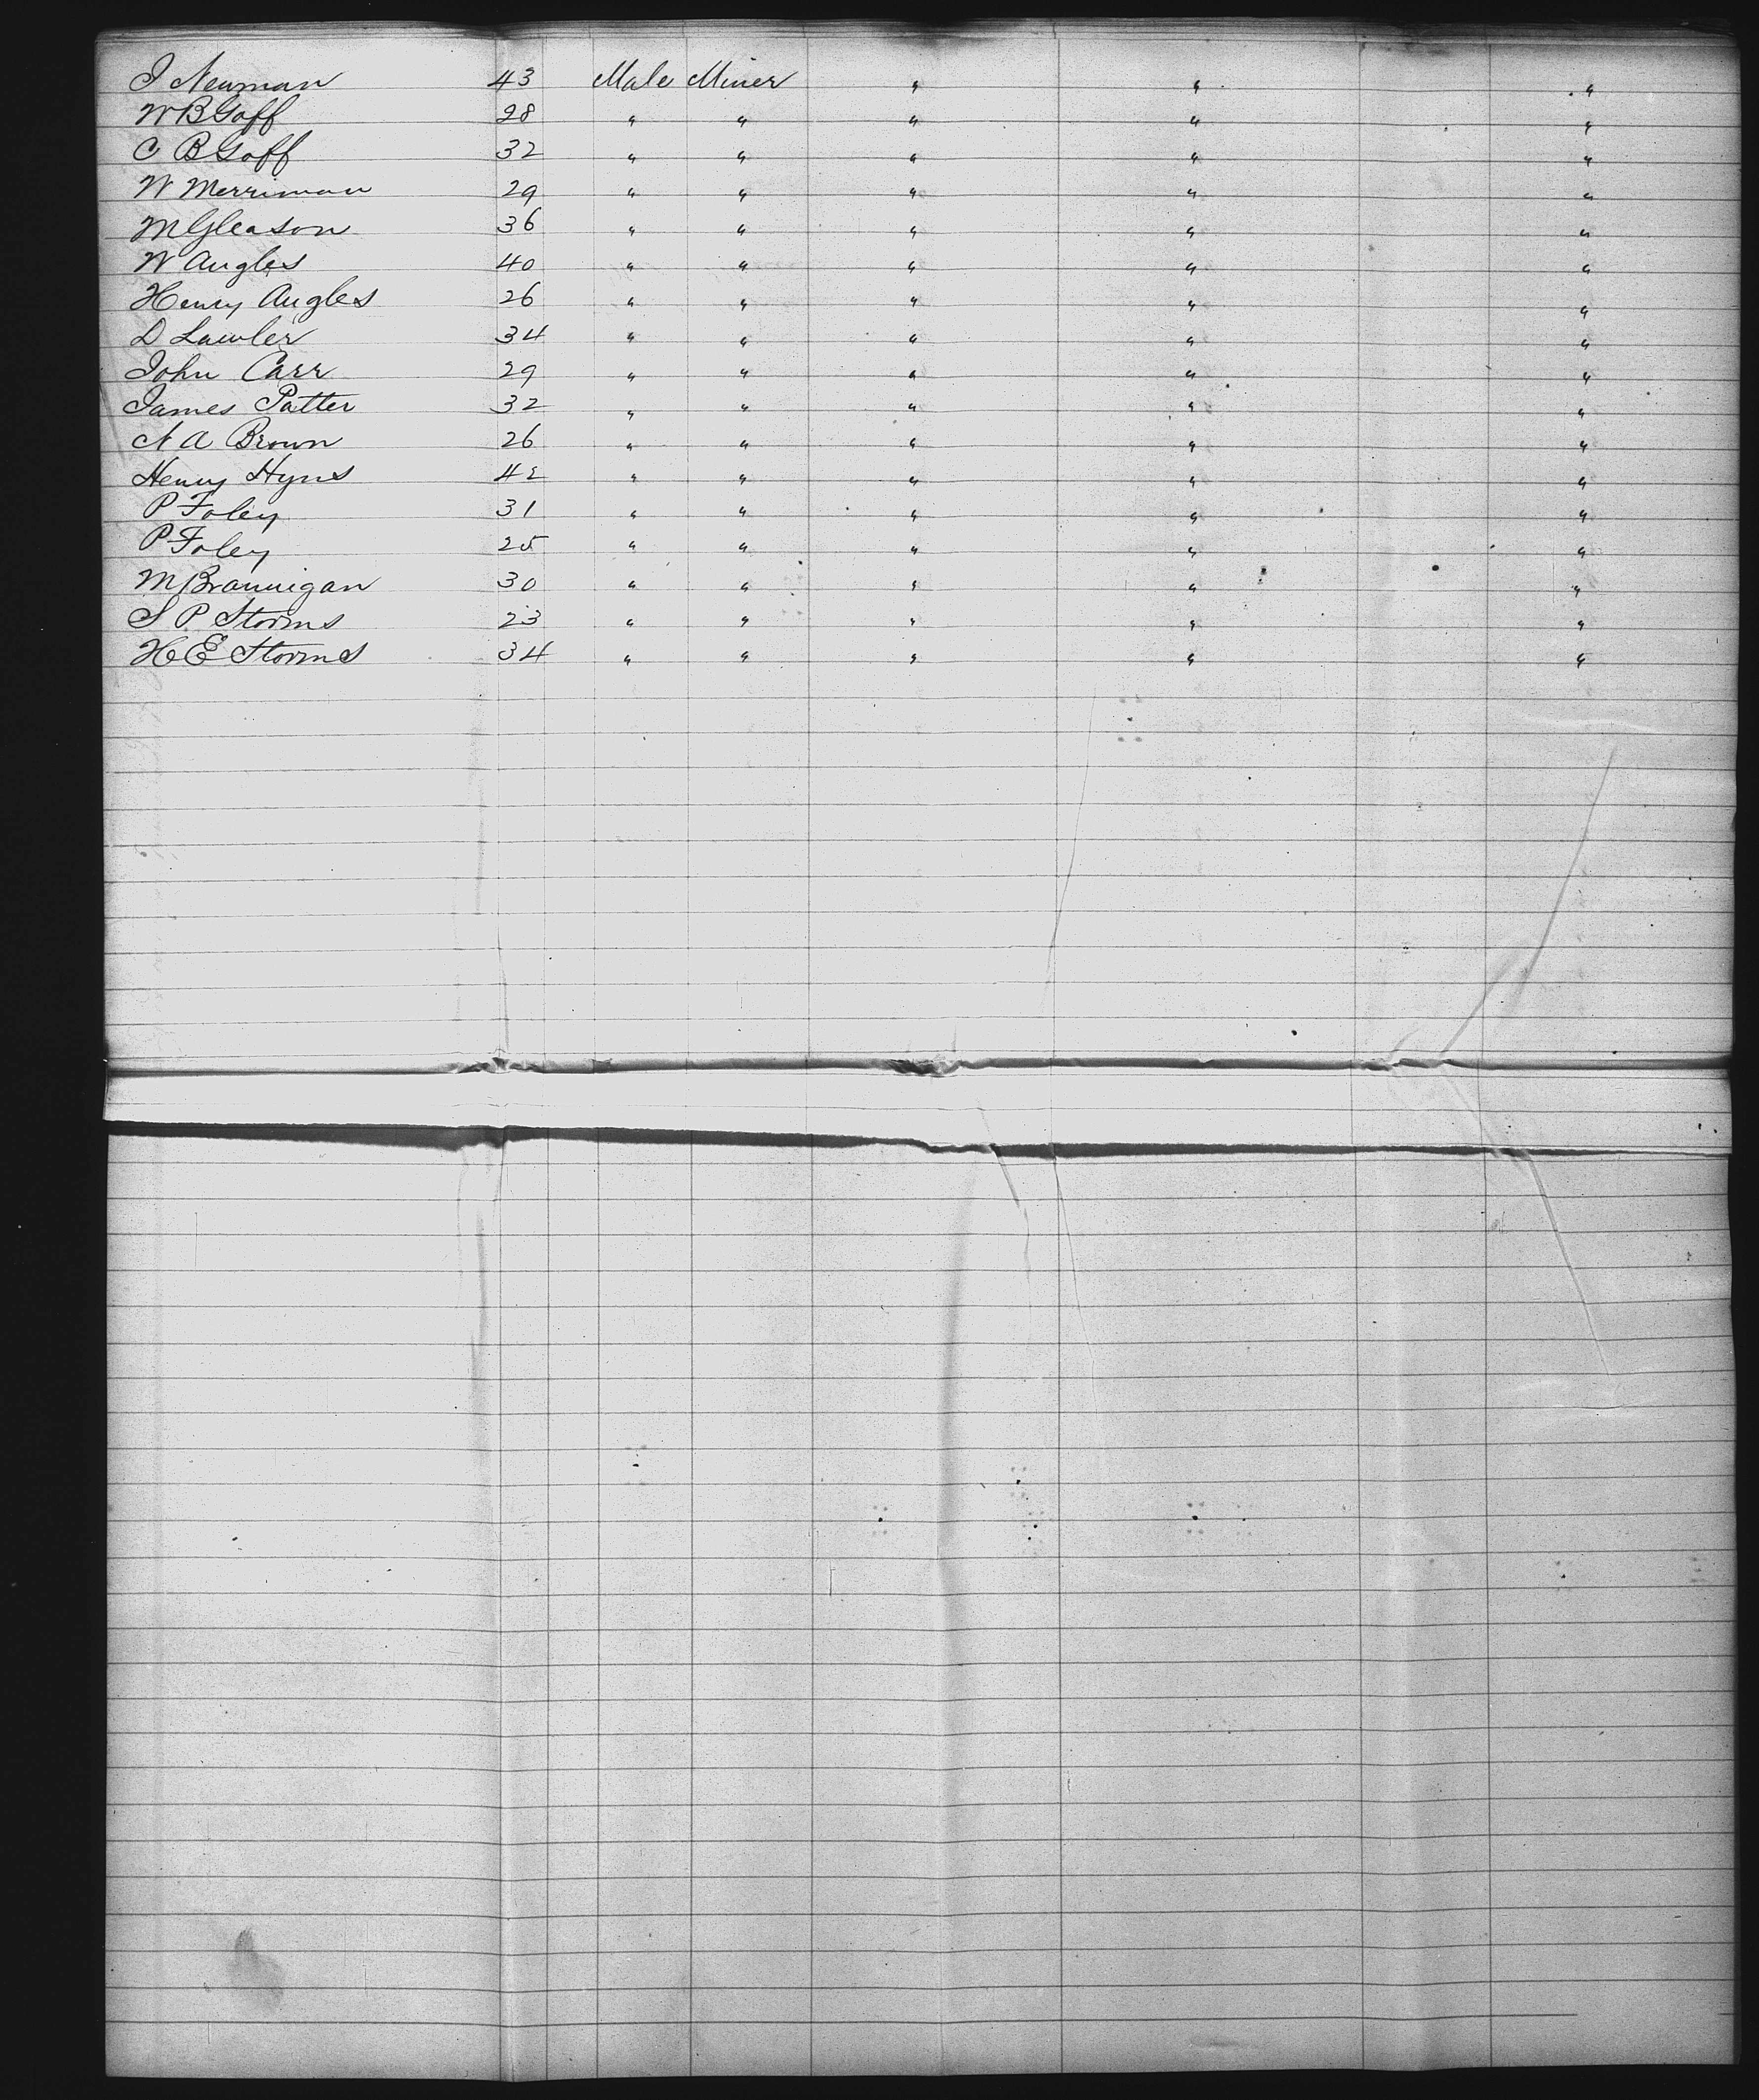 J Newman 43 Male Miner " " "
W B Goff 28 " " " " "
C B Goff 32 " " " " "
W Merriman 29 " " " " "
M Gleason 36 " " " " "
W Angles 40 " " " " "
Henry Angles 26 " " " " "
D Lawler 34 " " " " "
John Carr 29 " " " " "
James Patter 32 " " " " "
N A Brown 26 " " " " "
Henry Hyns 42 " " " " "
P Foley 31 " " " " "
P Foley 25 " " " " "
M Brannigan 30 " " " " "
S P Storms 23 " " " " "
H E Storms 34 " " " " "